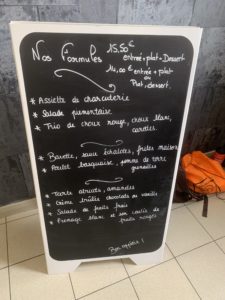 Nos Formules 15.50€
entrée + plat + Dessert
14,00€ entrée + plat
ou
Plat, dessert.
* Assiette de charcuterie
* Salade
* Trio de choux rouge, choux blanc,
carottes.
* Bavette, sauce échalotes, frites maison
* Poulet basquaise, pommes de terre
grenailles
* Tarte abricots, amandes
* Crème brûlée chocolats ou vanille
* Salade de fruits frais
* Fromage blanc et son coulis de
fruits rouges
Bon appétit !